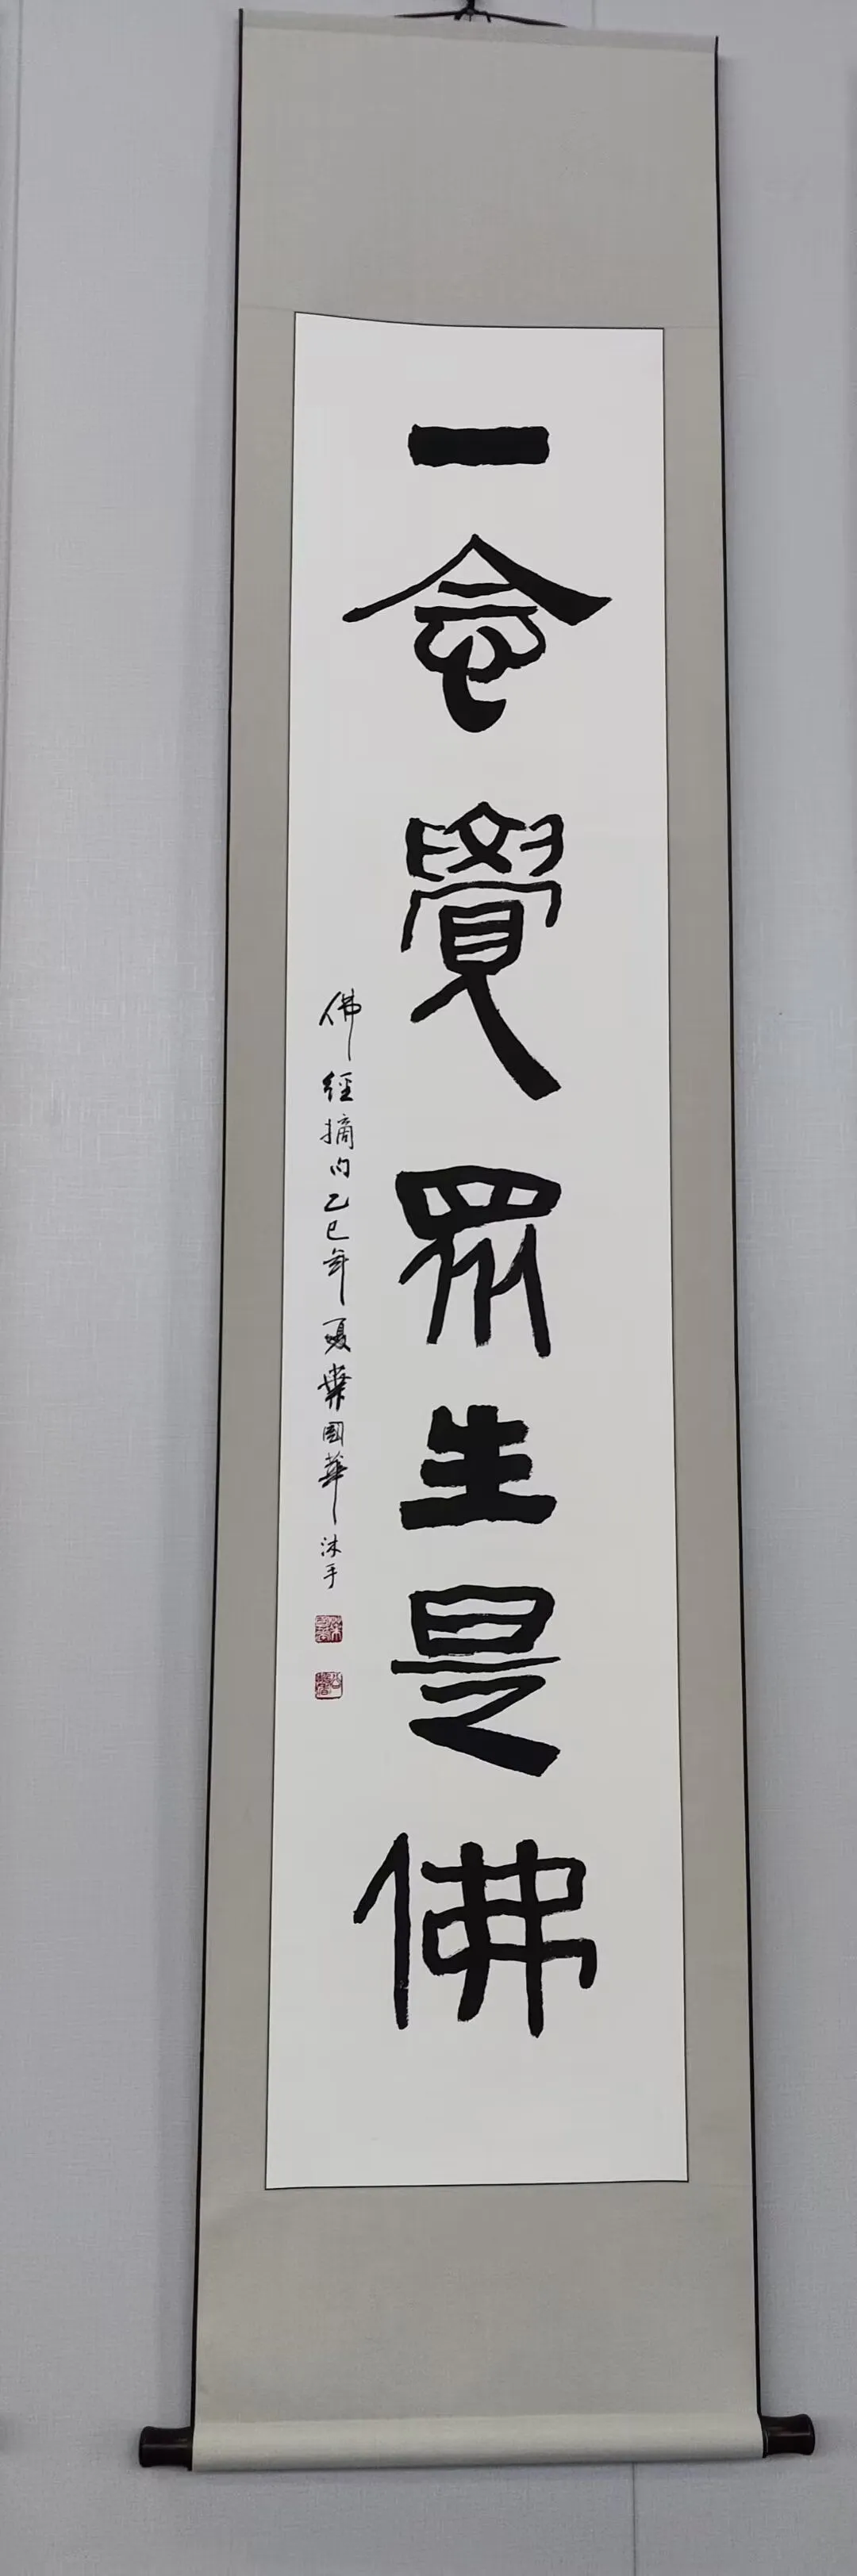 一念覺眾生是佛
佛經摘句乙巳年夏葉國華沐手